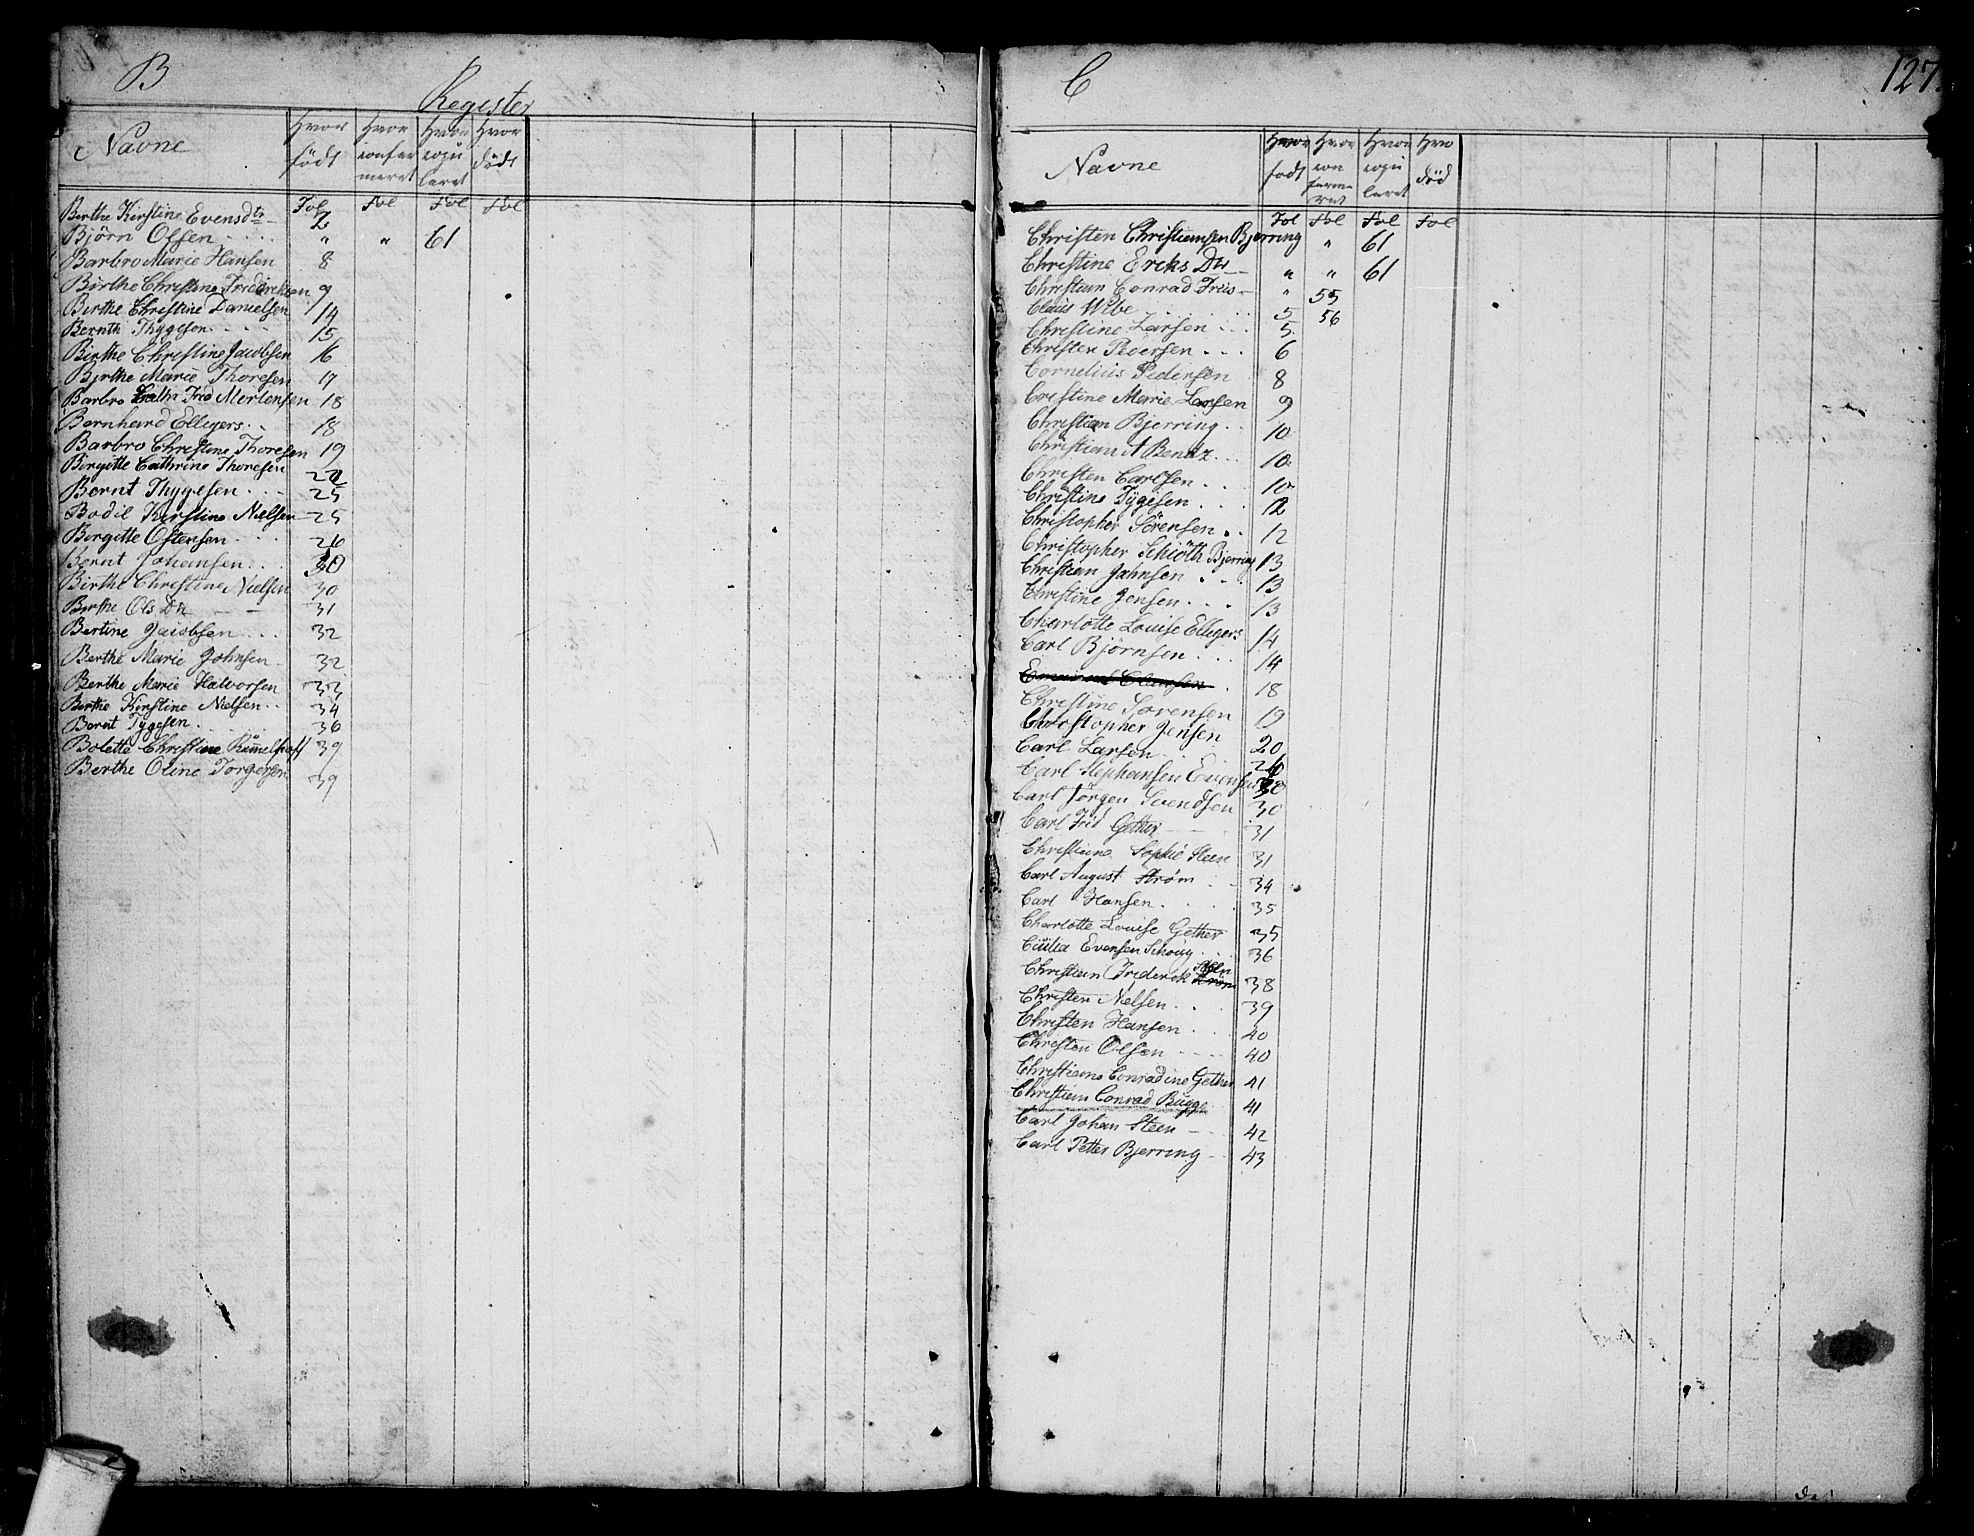 B
Register
Navne
Hvor født
Hvor confermeret
Hvor copuleret
Hvor død
Fol Fol Fol Fol
Berthe Kirstine Evensdtr 2
Bjørn Olsen . . . . " " 61
Barbro Marie Hansen 8
Birthe Christine Fredriksen 9
Birthe Christine Danielsen 14
Bernth Thygesen . . . . 15
Birthe Christine Jacobsen 16
Birthe Marie Thoresen 17
Barbro Fred Mortensen 18
Bernhard Ellegers . . 18
Barbro Christine Thoresen 19
Birgitte Cathrine Thoresen 22
Bernt Thygesen . . . 25
Bodil Kirstine Nielsen 25
Birgitte Ostensen . . . 26
Bernt Johansen . . . 30
Birthe Christine Nielsen 30
Berthe Ols Dtr — — 31
Bertine Jacobsen . . . 32
Berthe Marie Johnsen 32
Berthe Marie Halvorsen 33
Berthe Kirstine Nielsen . . 34
Bernt Tygesen . . . 36
Bolette Christine 39
Berthe Oline Torgersen 39
C
127.
Navne
Hvor født
Hvor confermeret
Hvor copuleret
Hvo død
Fol Fol Fol Fol
Christen Christiansen Bjerring " 61
Christine Eriks Dtr " " 61
Christian Conrad Friis — " 55
Claus Wibe . . . . . 5 56
Christine Larsen . . . 5
Christen Pedersen . . . 6
Cornelius Pedersen 8
Cristine Marie Larsen 9
Christian Bjerring . . 10
Christian A Bentz . . . 10
Christen Carlsen . . . 10
Christine Tygesen . . . . 12
Christopher Sörensen . . 12
Christopher Schiöth Bjerring 13
Christian Jahnsen . . . 13
Christine Jensen . . . 13
Charlotte Louise Ellegers 14
Carl Bjørnsen . . . 14
18
Christine Sorensen 19
Christopher Jensen 20
Carl Larsen . . .
Carl Stephansen Evensen 30
Carl Jörgen Svendsen 30
Carl Fred Gether — — 31
Christiane Sophie Steen 31
Carl August Strøm . . 34
Carl Hansen . . . . 35
Charlotte Louise Gether 35
Evensen Schoug . . 36
Christian Frederik Steen 38
Christen Nielsen . . . 39
Christen Hansen . . . 40
Christen Olsen . . . . 40
Christiane Conradine Gether 41
Christian Conrad Bugge 41
Carl Johan Steen — . 42
Carl Petter Bjerring — . 43